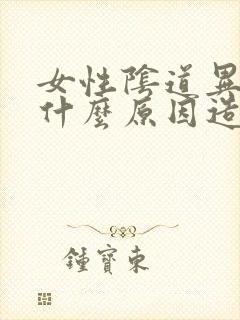 女性陰道異
什麼原因造
鍾寶東